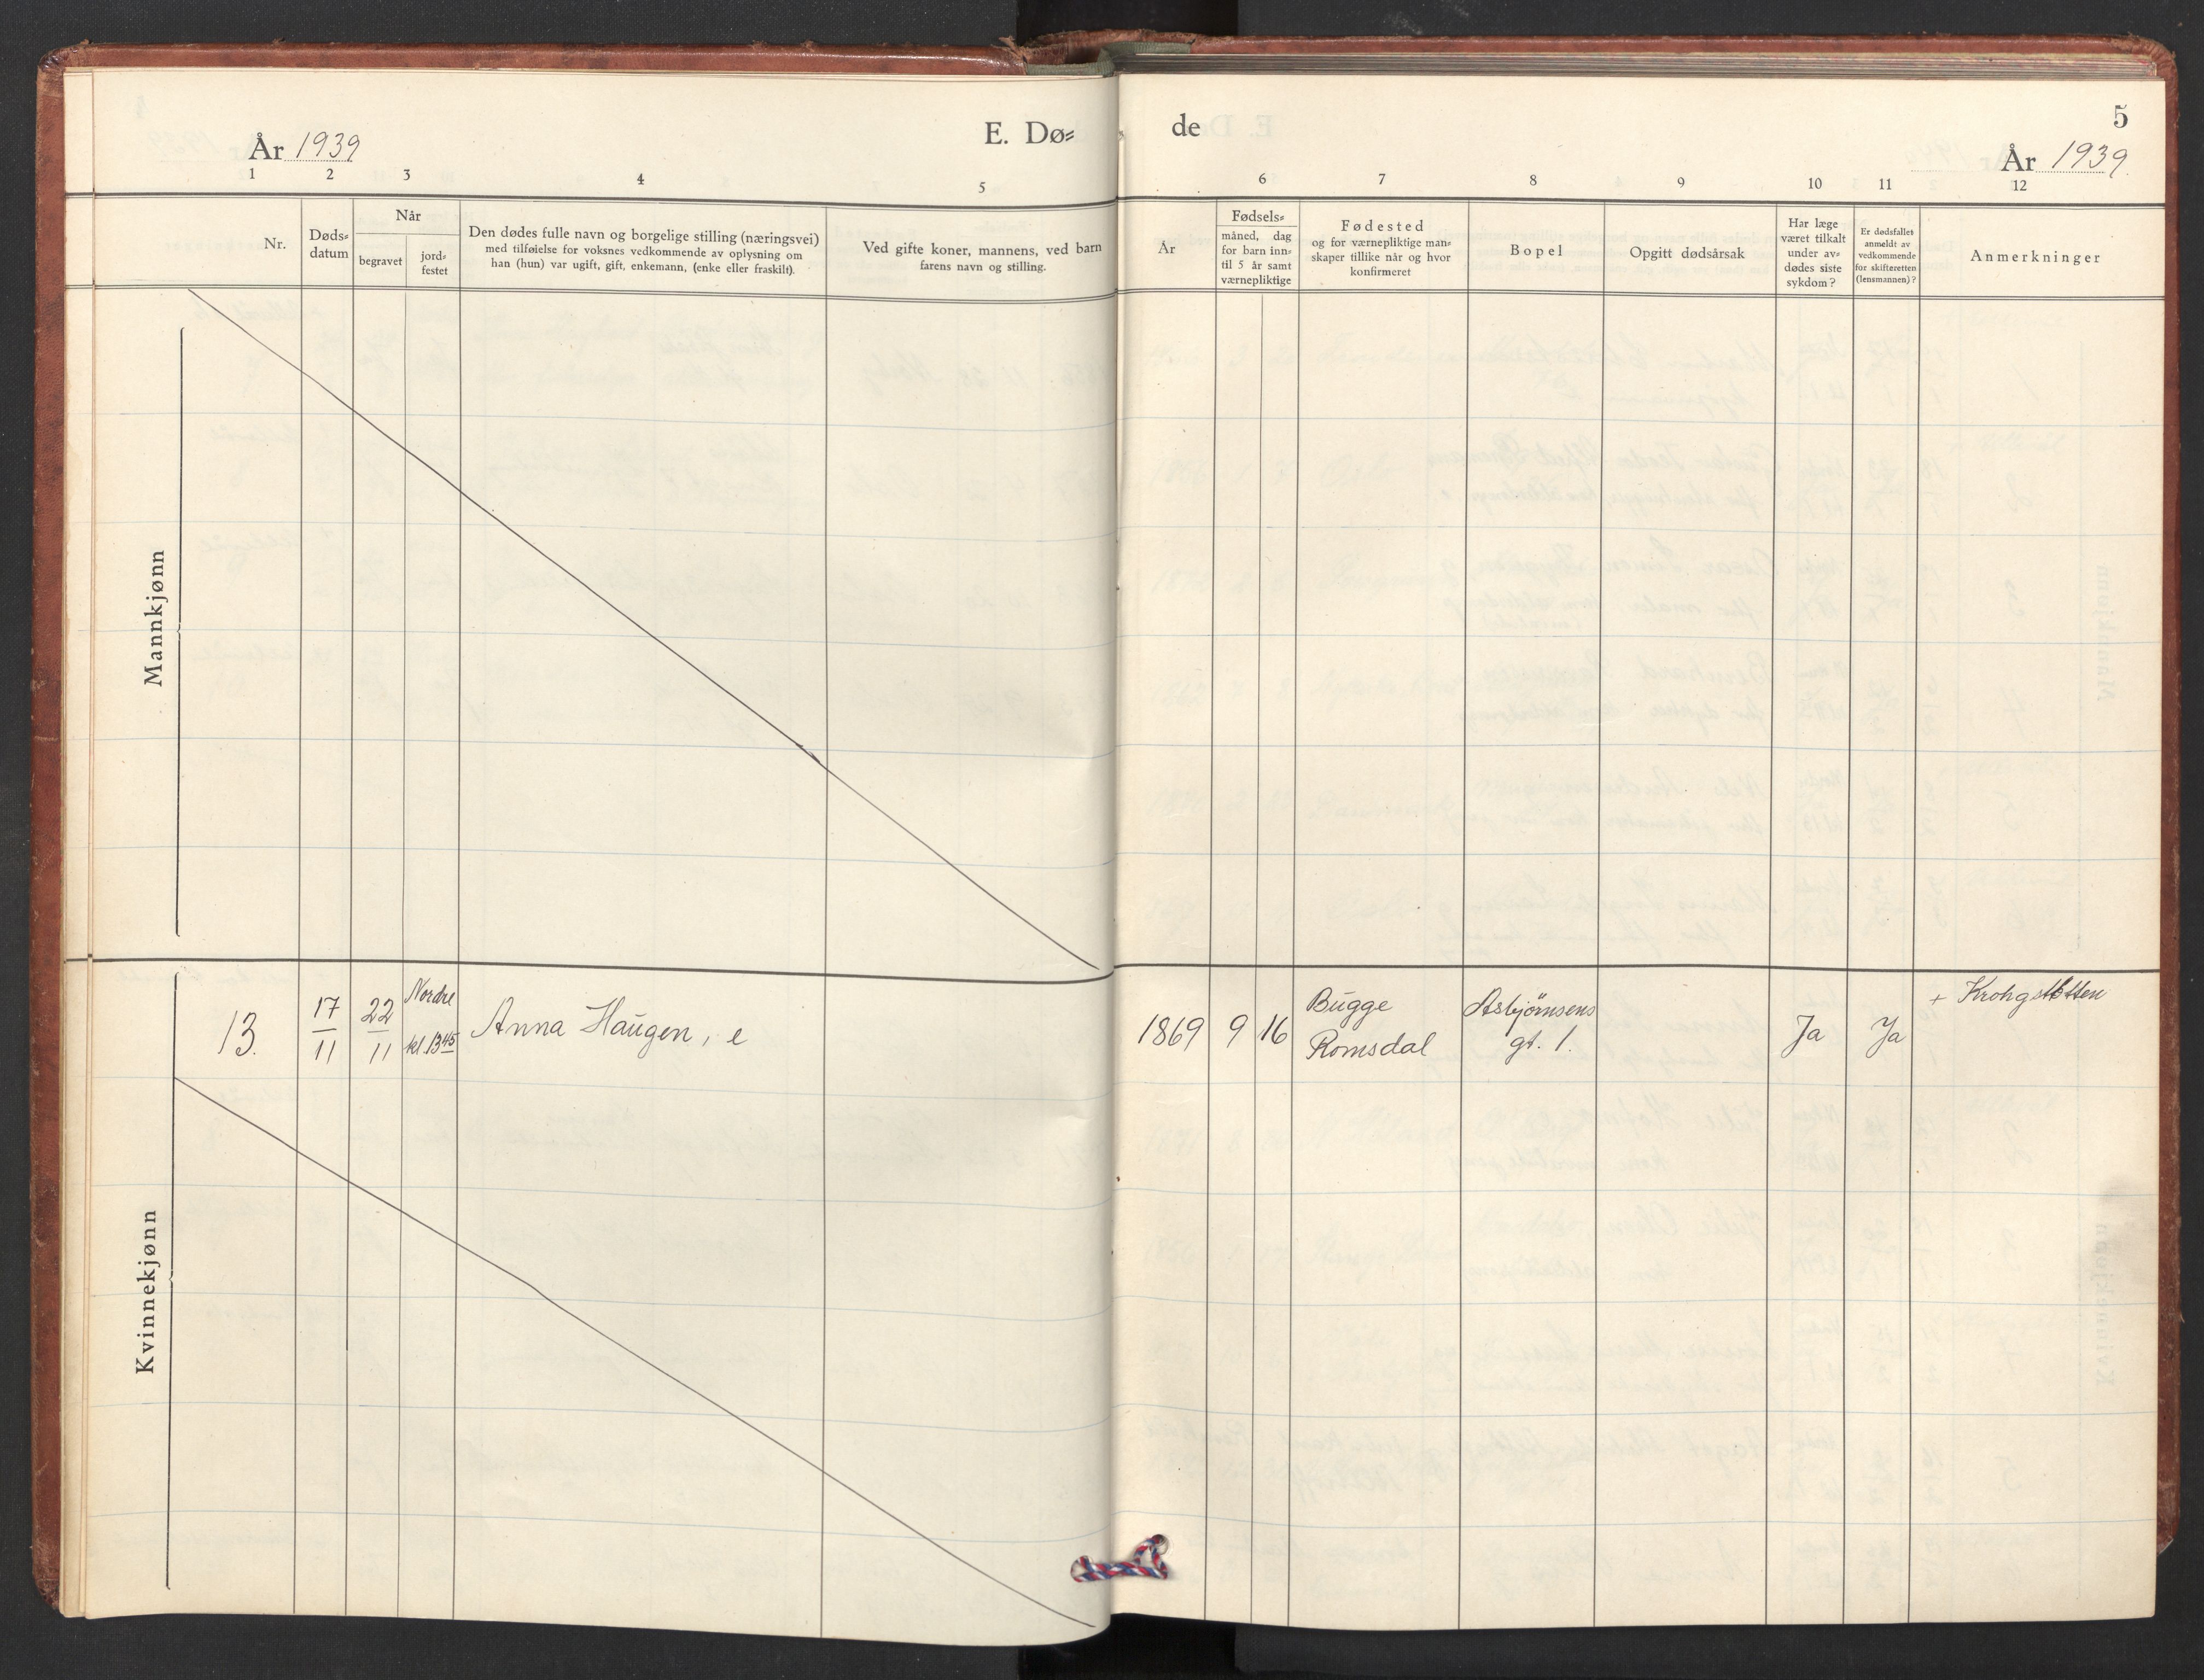 År 1939
E. Dø=
de
5
År 1939
1 2 3 4 5
6 7 8 9 10 11 12
Nr.
Døds=
datum
Når
begravet
jord=
festet
Den dødes fulle navn og borgelige stilling (næringsvei)
med tilføielse for voksnes vedkommende av oplysning om
han (hun) var ugift, gift, enkemann, (enke eller fraskilt).
Ved gifte koner, mannens, ved barn
farens navn og stilling.
År
Fødsels=
måned, dag
for barn inn=
til 5 år samt
værnepliktige
Fødested
og for værnepliktige man=
skaper tillike når og hvor
konfirmeret
Bopel
Opgitt dødsårsak
Har læge
været tilkalt
under av=
dødes siste
sykdom?
Er dødsfallet
anmeldt av
vedkommende
for skifteretten
(lensmannen)?
Anmerkninger
Mannkjønn
Kvinnekjønn
13. 17/11 22/11 Nordre
kl. 13 45
Anna Haugen, e
1869 9 16
Bugge
Romsdal
Asbjørnsens
gt. 1.
Ja Ja
+